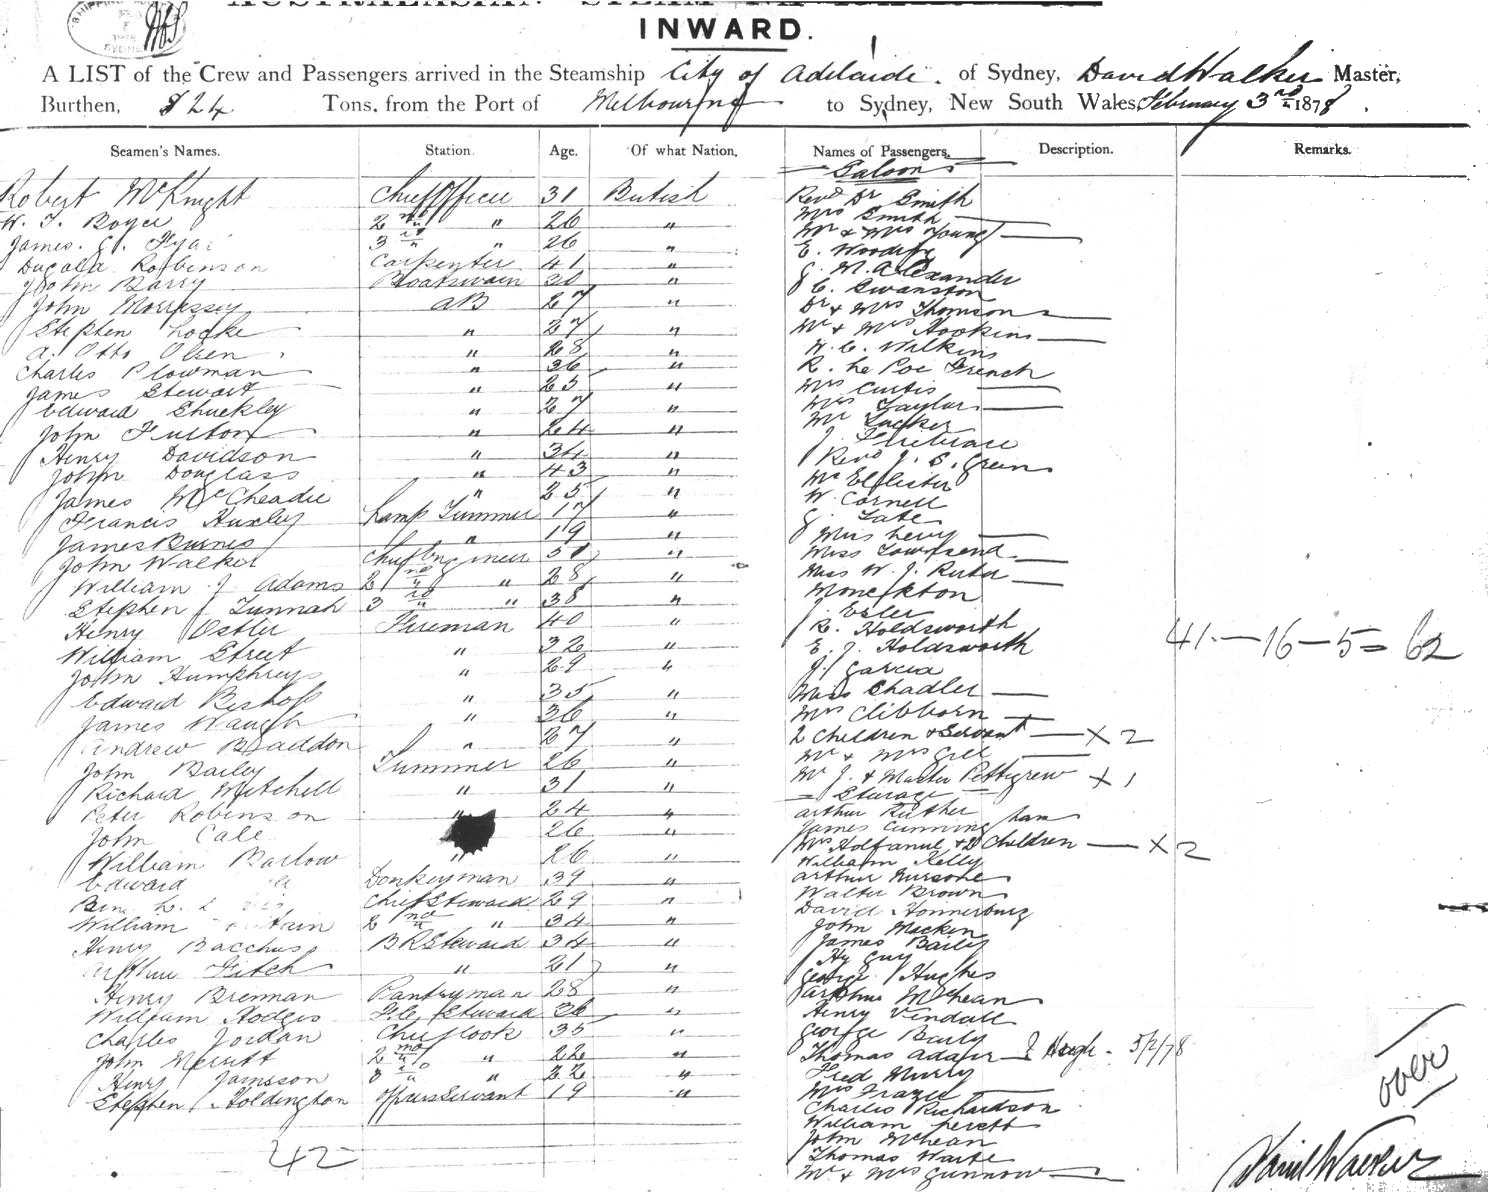 INWARD.
A LIST of the Crew and Passengers arrived in the Steamship City of Adelaide. of Sydney, David Walker Master,
Burthen, 824 Tons, from the Port of Melbourne to Sydney, New South Wales, February 3rd 1878.
Seamen's Names. Station. Age. Of what Nation. Names of Passengers. Description. Remarks.
Saloon
Robert McKnight Chief Officer 31 British Revd Dr Smith
W. T. Boyce 2nd " 26 " Mrs Smith
James. G. 3rd " 26 " Mr & Mrs Young
Dugald Robinson Carpenter 41 " E.
John Barry Boatswain 30 " G. M. Alexander
John Morrissey AB 27 " E. Swanston
Stephen Locke " 27 " Dr & Mrs Thomson
A. Otto Olsen " 28 " Mr & Mrs Hopkins
Charles Plowman " 36 " W. C. Wilkins
James Stewart " 25 " R. Le Poe French
Edward Shuckley " 27 " Mrs Curtis
John Fulton " 24 " Mrs Taylor
Henry Davidson " 34 " Mr Tucker
John Douglass " 43 " J. Firebrace
James McCheadie " 25 " Revd J. S. Green
Francis Huxley Lamp Trimmer 17 " McEllister
James Burnes " 19 " W. Cornell
John Walker Chief Engineer 51 " G. Tate
William J Adams 2nd " 28 " Miss Levy
Stephen J Tunnah 3rd " 38 " Miss Townsend
Henry Ostler Fireman 40 " Miss W. J.
William Street " 32 " Monckton
John Humphreys " 29 " J. Esler
Edward Bishop " 35 " R. Holdsworth
James Waugh " 36 " E. J. Holdsworth
41 — 16 — 5 = 62
Andrew Braddon " 27 " J. Garcia
John Bailey Trimmer 26 " Miss Chadler
Richard Mitchell " 31 " Mrs Clibborn
Peter Robinson " 24 " 2 Children & Servant — X 2
John Cale 26 " Mr & Mrs Gill
William Barlow " 26 " Mr J. & Master Pettigrew X 1
Steerage
Edward Donkeyman 39 " Arthur Ruther
Chief Steward 29 " James Cunningham
William 2nd " 34 " Mrs & 2 Children — X 2
Henry Bacchus BR Steward 34 " William Kelly
Arthur Fitch " 21 " Arthur
Henry Brennan Pantryman 28 " Walter Brown
William Hodges F.C. Steward 36 " David
Charles Jordan Chief Cook 35 " John Mackin
John Merritt 2nd " 22 " James Baily
Henry Jamsson 3rd " 22 " Hy Guy
Stephen Holdington Offrs Servant 19 " George Hughes
42
Arthur McLean
Henry Vendall
George Baily
Thomas Adair 5/2/78
Fred Murry
Mrs Frazer
Charles Richardson
William
John McLean
Thomas Waite
Mr & Mrs Gunnow
over
David Walker